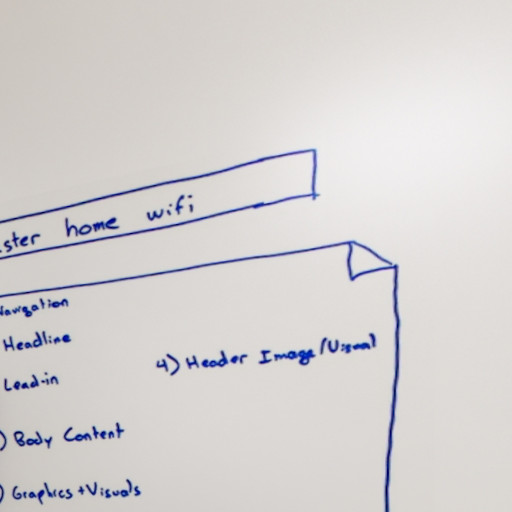 home wifi
Navigation
Headline
Lead-in
4) Header Image/Visual
) Body Content
) Graphics + Visuals